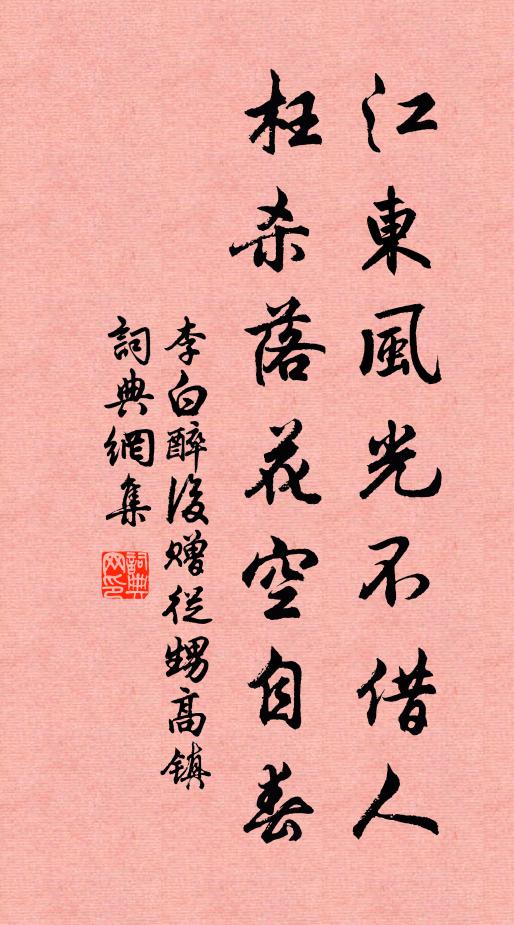 江東風光不借人
枉杀落花空自春
李白醉後贈從甥高鎮
詞典網集
詞典网印